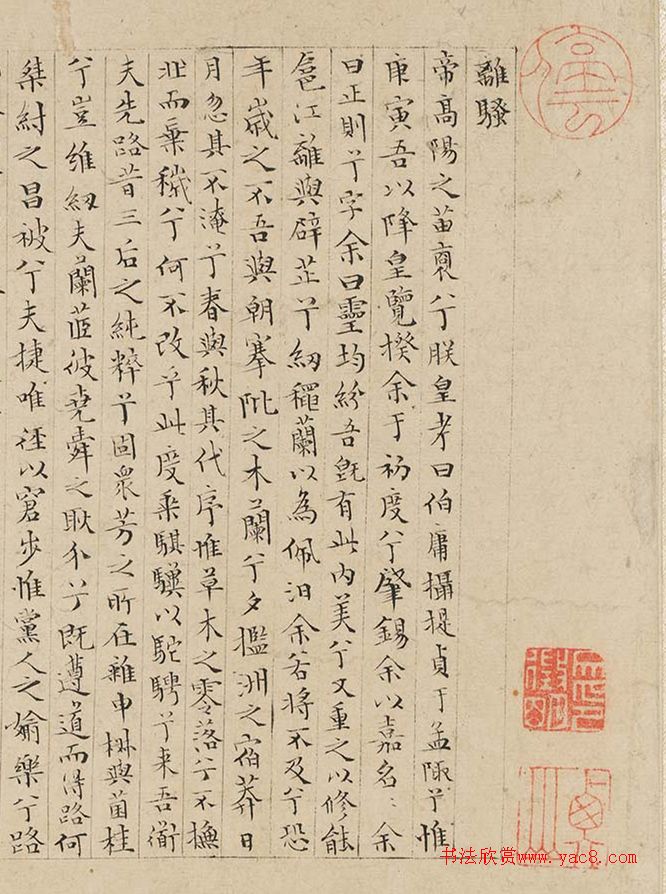 離騷
帝高陽之苗裔兮朕皇考曰伯庸攝提貞于孟陬兮惟
庚寅吾以降皇覽揆余于初度兮肇錫余以嘉名〻余
曰正則兮字余曰靈均紛吾旣有此内美兮又重之以修能
扈江離與辟芷兮紉穐蘭以為佩汩余若將不及兮恐
年歲之不吾與朝搴阰之木蘭兮夕檻洲之宿莽日
月忽其不淹兮春與秋其代序惟草木之零落兮不撫
壯而棄穢兮何不改乎此度乘騏驥以駝騁兮来吾導
夫先路昔三后之純粹兮固衆芳之所在雜申椒與菌桂
兮豈維紉夫蘭茝彼堯舜之耿介兮既遵道而得路何
桀紂之昌被兮夫捷唯徑以窘步惟黨人之媮樂兮路
书法欣赏www.yac8.com